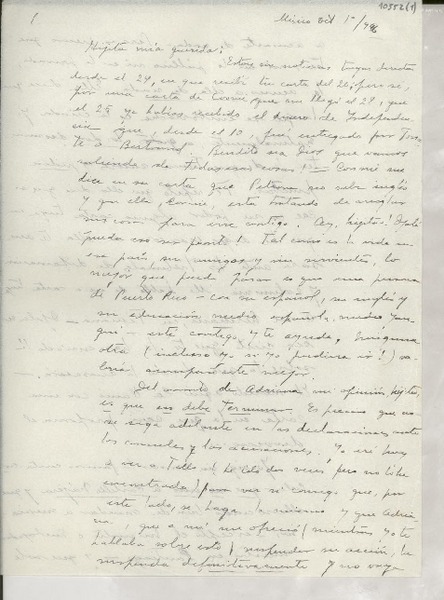 10552(1)
1
México Oct 1º/946
Hijita mía querida: Estoy sin noticias tuyas directas
desde el 24, en que recibí tu carta del 21; pero sé,
por una carta de Connie, que me llegó el 29, que
el 25 ya habías recibido el dinero de Independen
cia que, desde el 10, fué entregado por
te a Bertrand. Bendito sea Dios que vamos
saliendo de todas esas cosas! — Connie me
dice en su carta que Petrona no sabe inglés
y que ella, Connie, está tratando de arreglar
sus cosas para irse contigo. Ay, hijita! Ojalá
pueda eso ser pronto! Tal como es la vida en
ese país, sin amigos y sin sirvientes, lo
mejor que puede pasar es que una persona
de Puerto Rico — con su español, su inglés y
su educación medio española, medio yan
qui — esté contigo y te ayude. Ninguna
otra (inclusive yo si yo pudiera ir!) va
mejor.
Del asunto de Adriana, mi opinión, hijita,
es que eso debe terminar. Es preciso que no
se siga adelante en las declaraciones ante
los consules y las acusaciones. Yo iré hoy
a ver a Tello (he ido dos veces pero no lo he
encontrado) para ver si consigo que, por
este lado, se haga lo mismo y que Adria
na, que a mí me ofreció (mientras yo te
hablaba sobre esto) suspender su acción, la
suspenda definitivamente y no vaya